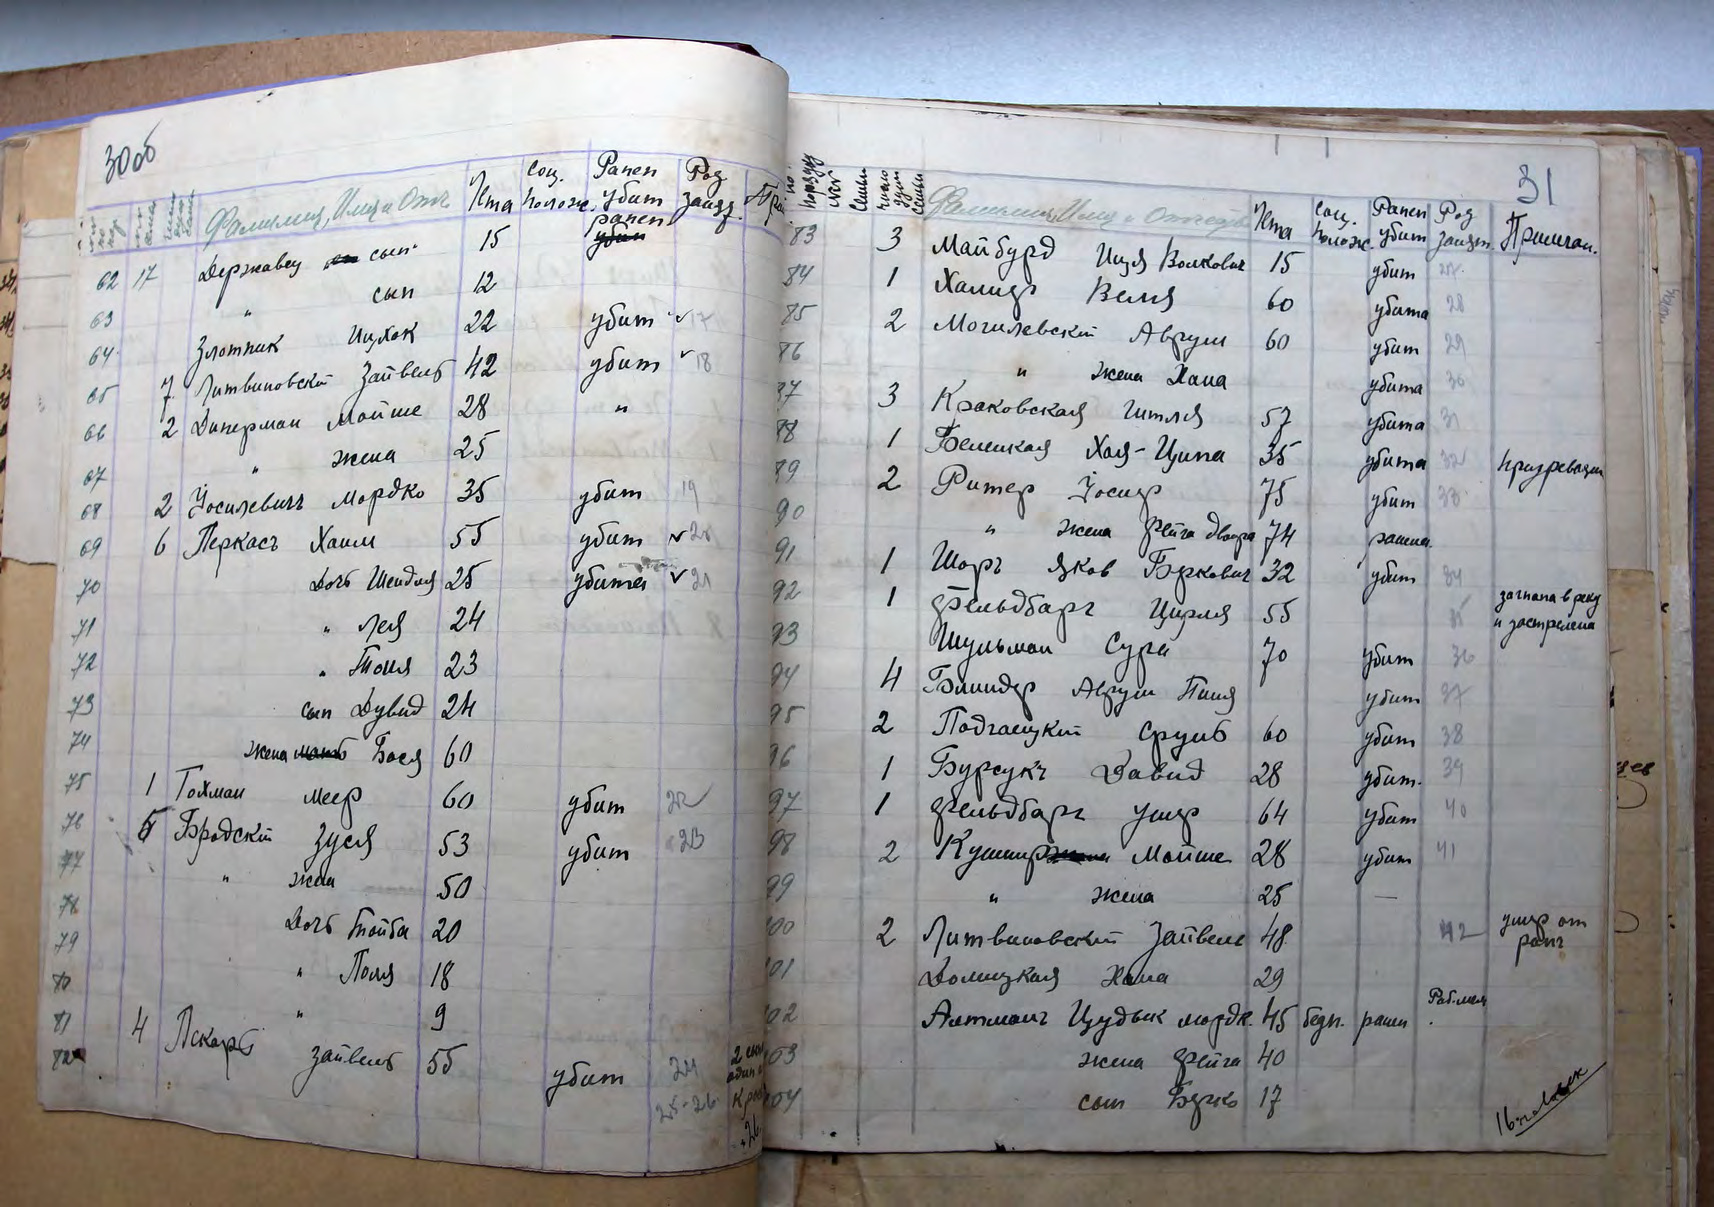 30об
Фамилия, Имя и Отч. Лета Соц. полож. Ранен убит Род занят. При
62 17 Державец сын 15 ранен
63 " сын 12
64 Злотник Ицхок 22 убит 17
65 7 Литвиновский Зайвель 42 убит 18
66 2 Диперман Мойше 28 "
67 " жена 25
68 2 Иосилевич Мордко 35 убит 19
69 6 Перкась Хаим 55 убит 20
70 Дочь Шендля 25 убита 21
71 " Лея 24
72 " Толя 23
73 сын Дувид 24
74 жена Бася 60
75 1 Гохман Меер 60 убит 22
76 5 Бродский Зуся 53 убит 23
77 " жена 50
78 Дочь Тойба 20
79 " Поля 18
80 " 9
81 4 Пскарь Зайвель 55 убит 24
82 25-26
31
по порядку №№ семьи число душ семьи Фамилия, Имя и Отчество Лета Соц. полож. Ранен убит Род занят. Примечан.
83 3 Майбурд Иця Волкович 15 убит 27
84 1 Халицр Веля 60 убита 28
85 2 Могилевский Аврум 60 убит 29
86 " жена Хана убита 30
87 3 Краковская Гитля 57 убита 31
88 1 Белецкая Хая-Ципа 35 убита 32
89 2 Ритер Иосиф 75 убит 33
90 " жена Фейга Двойра 74 ранена
91 1 Шорь Яков Беркович 32 убит 34
92 1 Фельдбарг Цирля 55 35 загнана в реку и застрелена
93 Шульман Сура 70 убит 36
94 4 Блиндер Аврум Пиня убит 37
95 2 Подгаецкий Сруль 60 убит 38
96 1 Бурсукъ Давид 28 убит. 39
97 1 Фельдбарг Ушер 64 убит 40
98 2 Кушнир Мойше 28 убит 41
99 " жена 25 —
100 2 Литвиновский Зайвель 48 42 умер от ран
101 Долицкая Хана 29
102 Алтманъ Цудык Мордк. 45 бедн. ранен
103 жена Фейга 40
104 сын Берко 17
16 человек